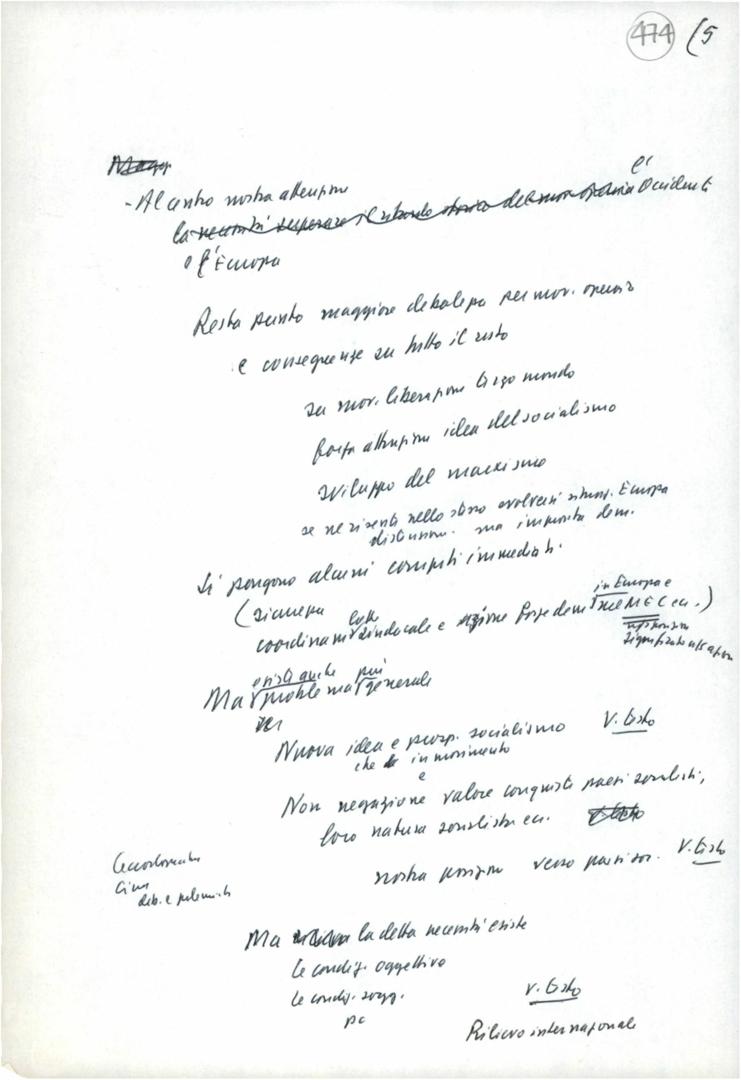 474 (5
è
- Al centro nostra attenzione
la necessità superare il ritardo storico del mov. operaio Occidente
e l'Europa
Resta punto maggiore debolezza per mov. operaio
e conseguenze su tutto il resto
su mov. liberazione terzo mondo
forza attrazione idea del socialismo
sviluppo del marxismo
se ne risente nello stesso evolversi situaz. Europa
distensione. ma impronta dem.
Si pongono alcuni compiti immediati.
in Europa e
(sicurezza lotte
coordinam. sindacale e azione forze dem. nel MEC ecc.)
significato
esiste anche più
Ma problema generale
Nuova idea e prosp. socialismo V. testo
che in movimento
e
Non negazione valore conquiste paesi socialisti,
loro natura socialista ecc.
nostra posizione verso paesi soc. V. testo
Cecoslovacchia
Cina
dib. e polemiche
Ma la detta necessità esiste
le condiz. oggettive
le condiz. sogg. V. testo
pc
Rilievo internazionale